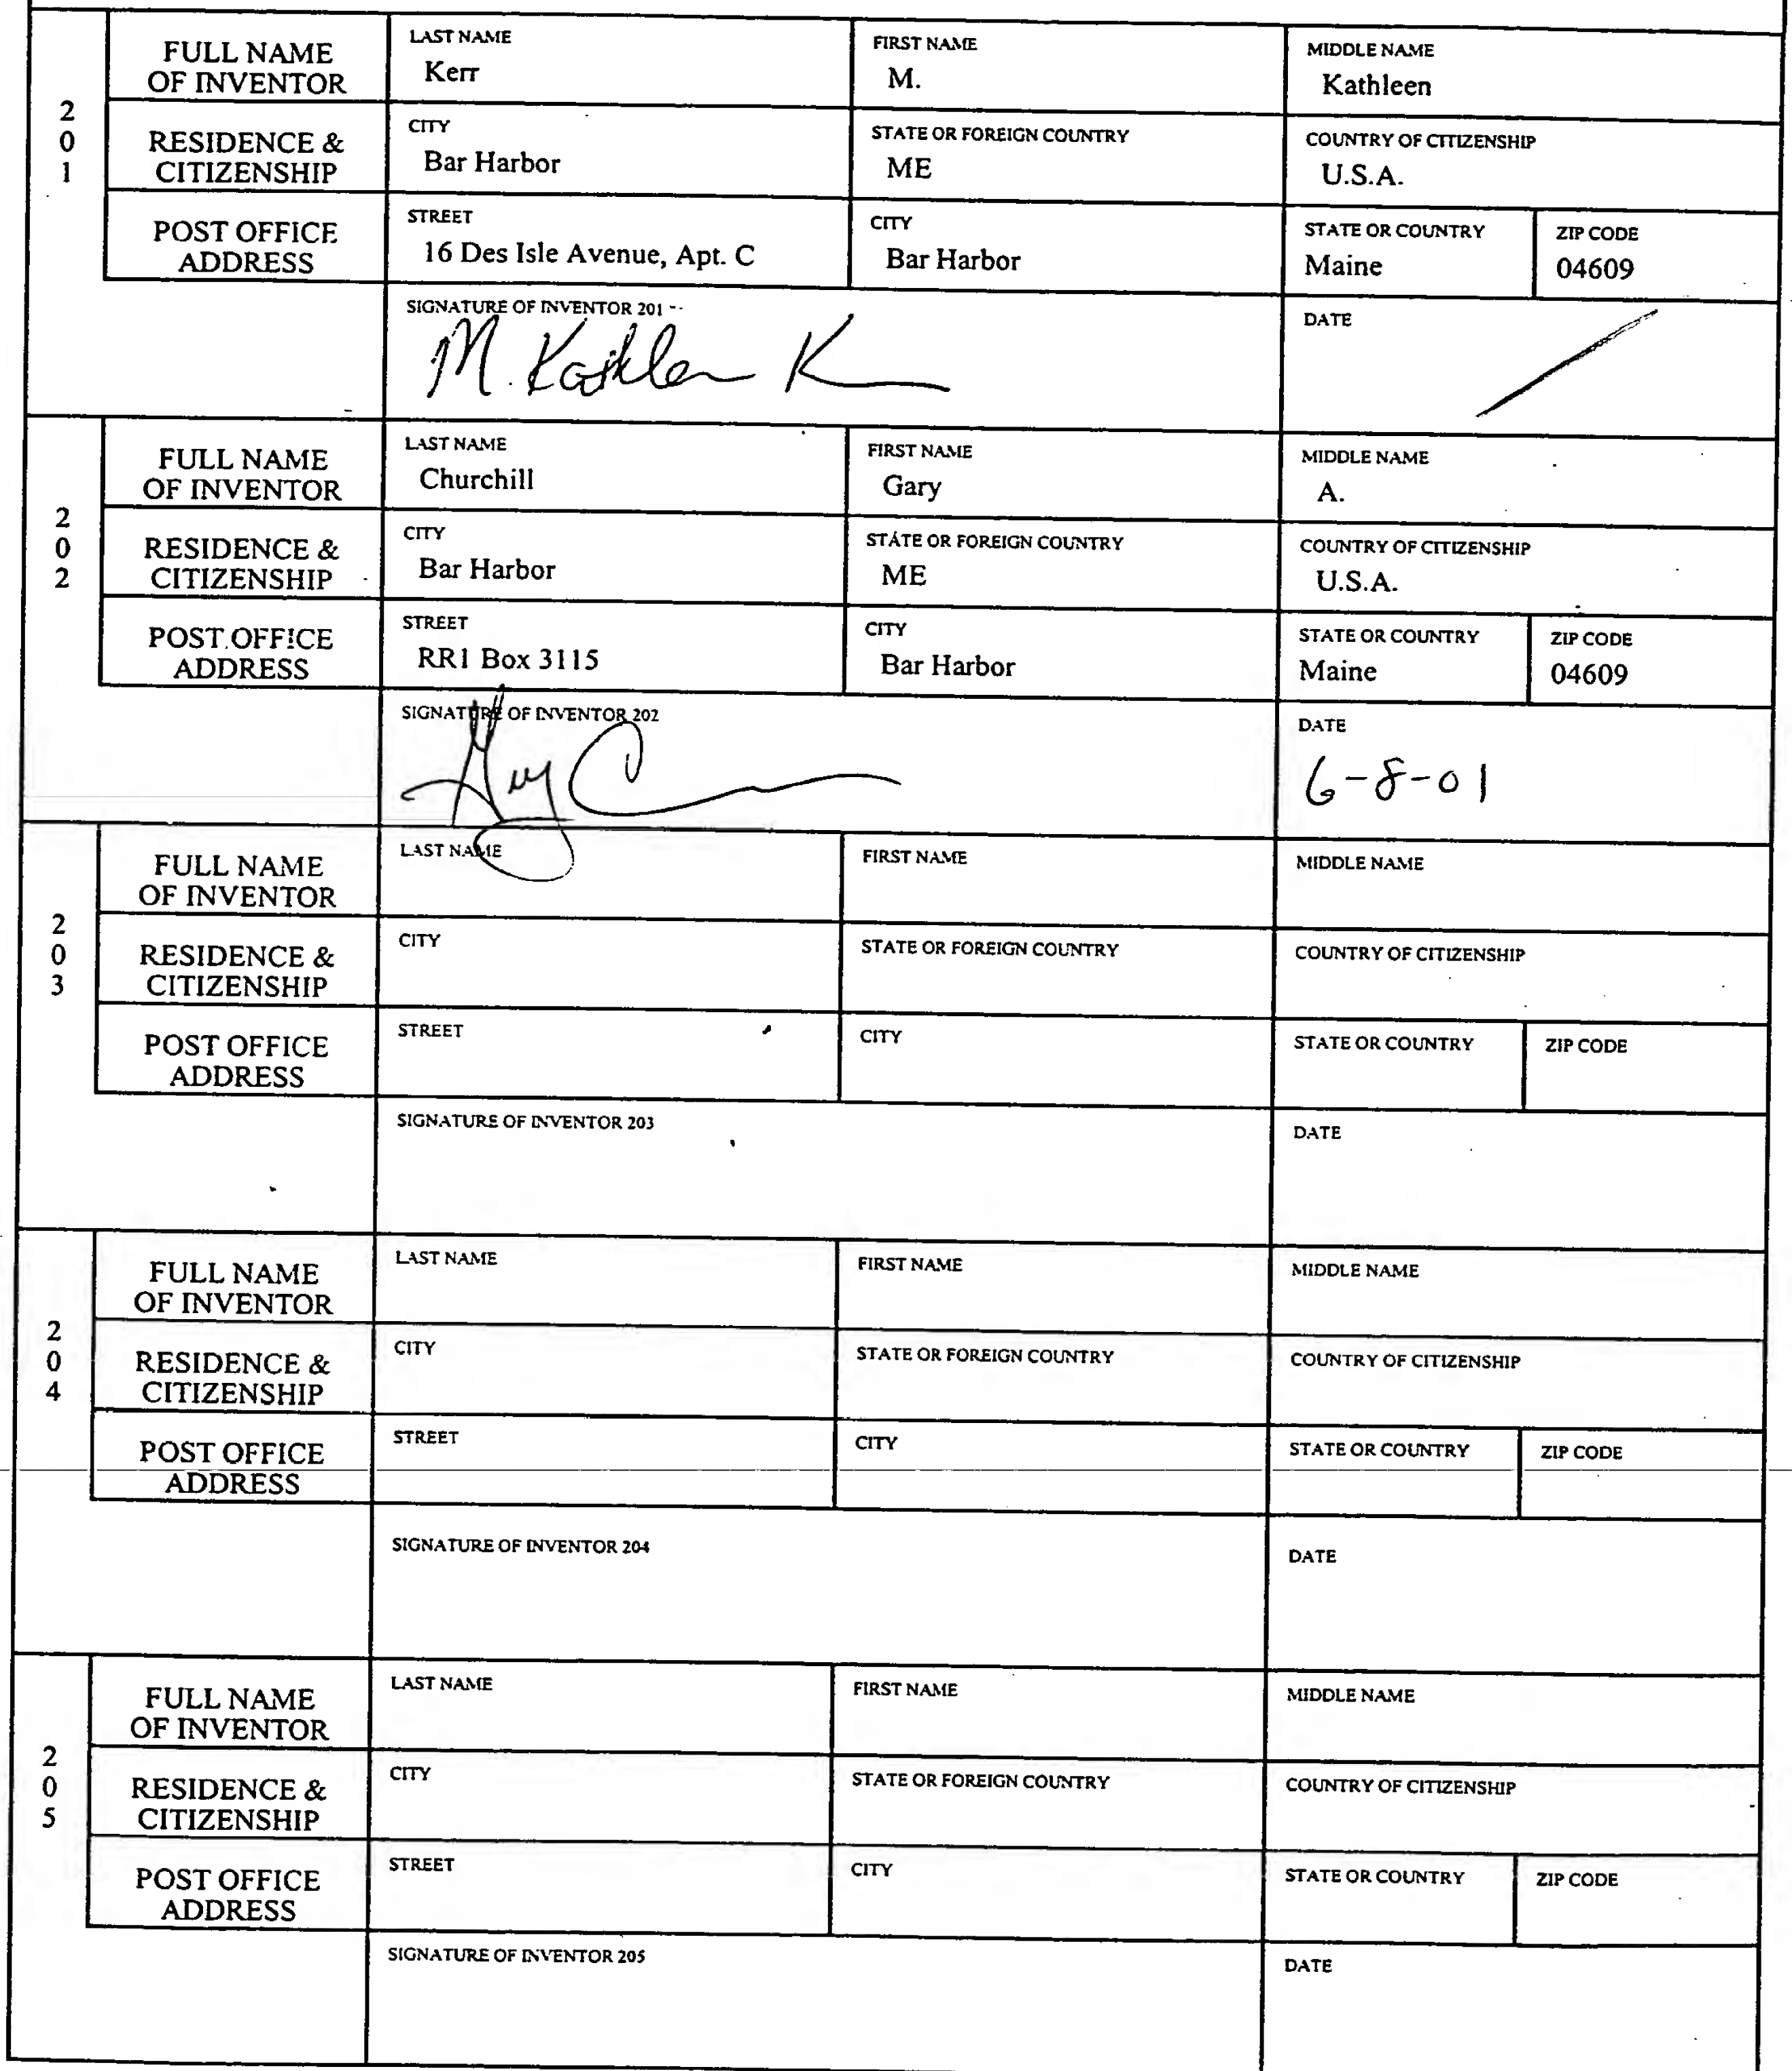 201
FULL NAME OF INVENTOR
LAST NAME
Kerr
FIRST NAME
M.
MIDDLE NAME
Kathleen
RESIDENCE & CITIZENSHIP
CITY
Bar Harbor
STATE OR FOREIGN COUNTRY
ME
COUNTRY OF CITIZENSHIP
U.S.A.
POST OFFICE ADDRESS
STREET
16 Des Isle Avenue, Apt. C
CITY
Bar Harbor
STATE OR COUNTRY
Maine
ZIP CODE
04609
SIGNATURE OF INVENTOR 201
M. Kathleen K
DATE
202
FULL NAME OF INVENTOR
LAST NAME
Churchill
FIRST NAME
Gary
MIDDLE NAME
A.
RESIDENCE & CITIZENSHIP
CITY
Bar Harbor
STATE OR FOREIGN COUNTRY
ME
COUNTRY OF CITIZENSHIP
U.S.A.
POST OFFICE ADDRESS
STREET
RR1 Box 3115
CITY
Bar Harbor
STATE OR COUNTRY
Maine
ZIP CODE
04609
SIGNATURE OF INVENTOR 202
Gary C
DATE
6-8-01
203
FULL NAME OF INVENTOR
LAST NAME
FIRST NAME
MIDDLE NAME
RESIDENCE & CITIZENSHIP
CITY
STATE OR FOREIGN COUNTRY
COUNTRY OF CITIZENSHIP
POST OFFICE ADDRESS
STREET
CITY
STATE OR COUNTRY
ZIP CODE
SIGNATURE OF INVENTOR 203
DATE
204
FULL NAME OF INVENTOR
LAST NAME
FIRST NAME
MIDDLE NAME
RESIDENCE & CITIZENSHIP
CITY
STATE OR FOREIGN COUNTRY
COUNTRY OF CITIZENSHIP
POST OFFICE ADDRESS
STREET
CITY
STATE OR COUNTRY
ZIP CODE
SIGNATURE OF INVENTOR 204
DATE
205
FULL NAME OF INVENTOR
LAST NAME
FIRST NAME
MIDDLE NAME
RESIDENCE & CITIZENSHIP
CITY
STATE OR FOREIGN COUNTRY
COUNTRY OF CITIZENSHIP
POST OFFICE ADDRESS
STREET
CITY
STATE OR COUNTRY
ZIP CODE
SIGNATURE OF INVENTOR 205
DATE